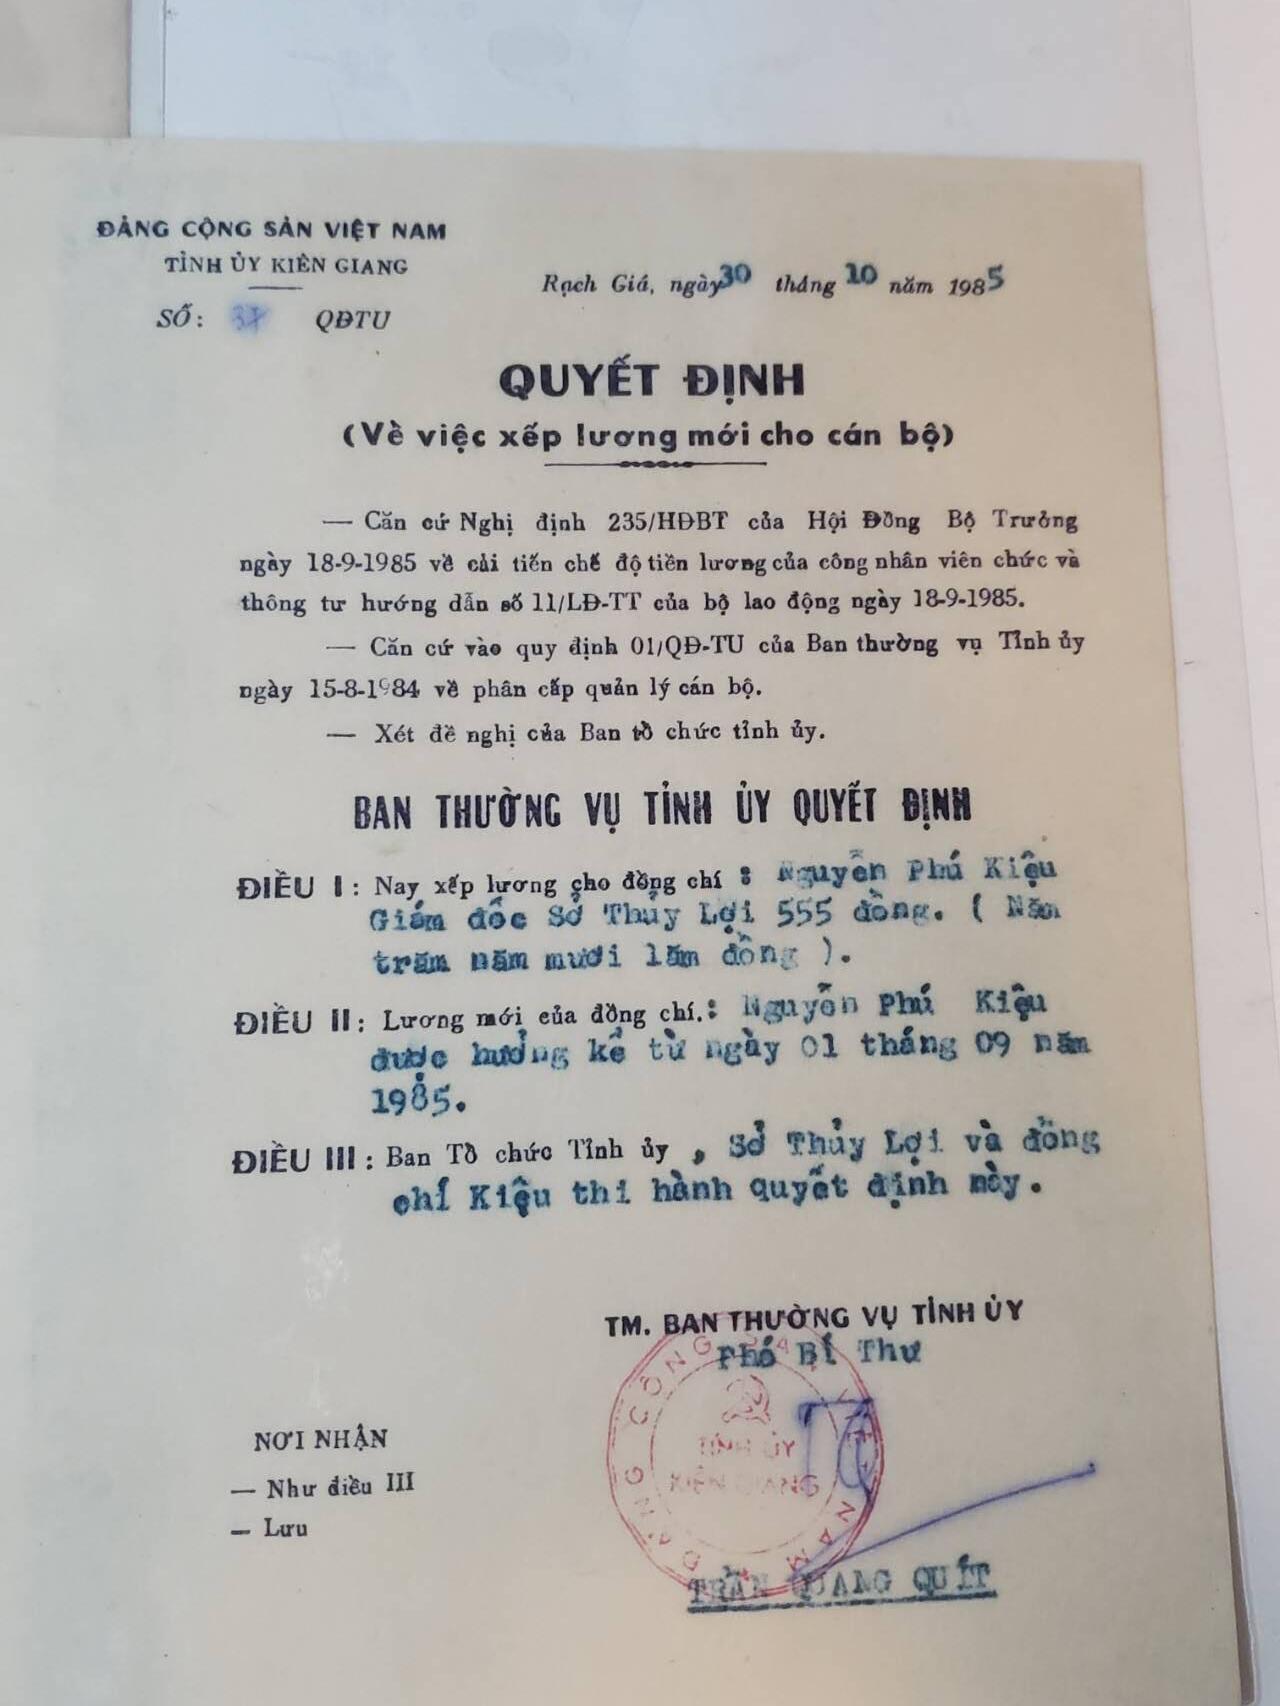 ĐẢNG CỘNG SẢN VIỆT NAM
TỈNH ỦY KIÊN GIANG
SỐ: 37 QĐTU
Rạch Giá, ngày 30 tháng 10 năm 1985
QUYẾT ĐỊNH
(Về việc xếp lương mới cho cán bộ)
— Căn cứ Nghị định 235/HĐBT của Hội Đồng Bộ Trưởng
ngày 18-9-1985 về cải tiến chế độ tiền lương của công nhân viên chức và
thông tư hướng dẫn số 11/LĐ-TT của bộ lao động ngày 18-9-1985.
— Căn cứ vào quy định 01/QĐ-TU của Ban thường vụ Tỉnh ủy
ngày 15-8-1984 về phân cấp quản lý cán bộ.
— Xét đề nghị của Ban tổ chức tỉnh ủy.
BAN THƯỜNG VỤ TỈNH ỦY QUYẾT ĐỊNH
ĐIỀU I: Nay xếp lương cho đồng chí : Nguyễn Phú Kiệu
Giám đốc Sở Thủy Lợi 555 đồng. ( Năm
trăm năm mươi lăm đồng ).
ĐIỀU II: Lương mới của đồng chí.: Nguyễn Phú Kiệu
được hưởng kể từ ngày 01 tháng 09 năm
1985.
ĐIỀU III: Ban Tổ chức Tỉnh ủy , Sở Thủy Lợi và đồng
chí Kiệu thi hành quyết định này.
TM. BAN THƯỜNG VỤ TỈNH ỦY
Phó Bí Thư
ĐẢNG CỘNG SẢN VIỆT NAM
TỈNH ỦY
KIÊN GIANG
NƠI NHẬN
— Như điều III
— Lưu
TRẦN QUANG QUÍT